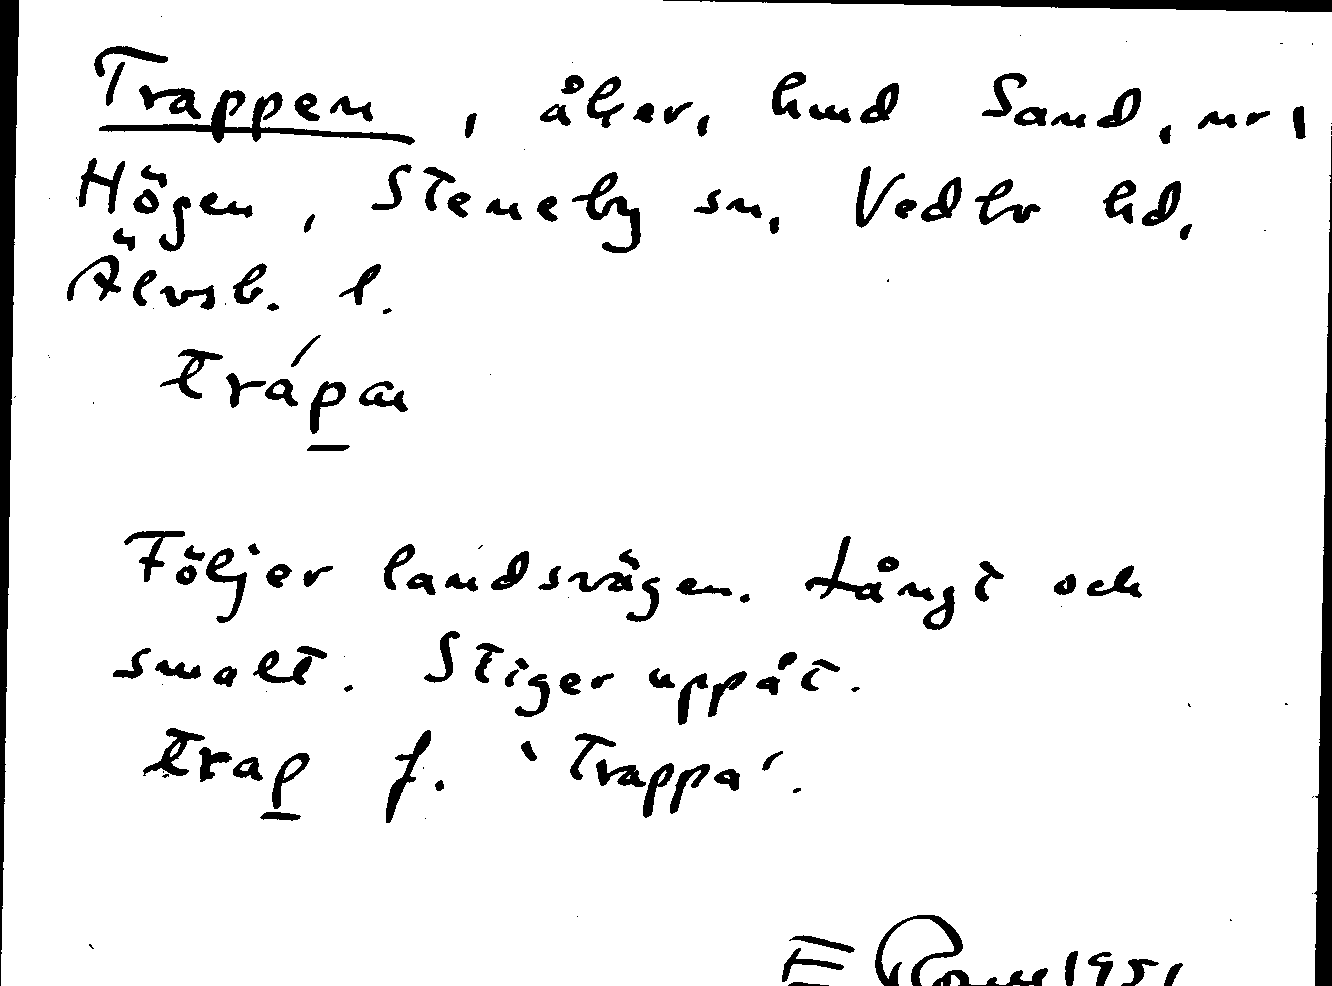 Trappen, åker, hmd Sand, nr 1
Högen, Steneby sn, Vedbo hd,
Älvsb. l.
trápan
Följer landsvägen. Långt och
smalt. Stiger uppåt.
trap f. 'Trappa'.
E 1951